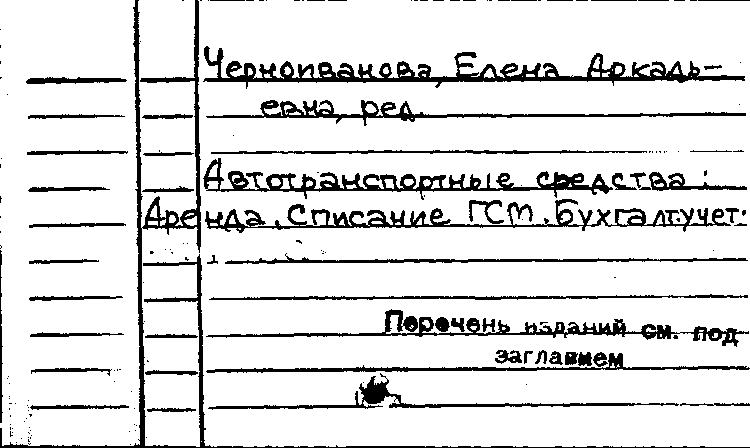 Черноиванова, Елена Аркадь-
евна, ред.
Автотранспортные средства :
Аренда. Списание ГСМ. Бухгалт.учет.
Перечень изданий см. под
заглавием